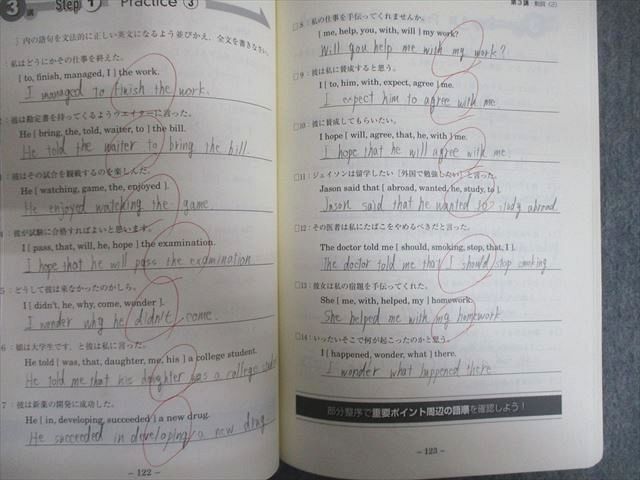 3 講 Step 1 Practice ③
]内の語句を文法的に正しい英文になるよう並びかえ,全文を書きなさい.
私はどうにかその仕事を終えた.
[ to, finish, managed, I ] the work.
I managed to finish the work.
:彼は勘定書を持ってくるようウエイターに言った.
He [ bring, the, told, waiter, to ] the bill.
He told the waiter to bring the bill.
:彼はその試合を観戦するのを楽しんだ.
He [ watching, game, the, enjoyed ].
He enjoyed watching the game.
:彼が試験に合格すればよいと思います.
I [ pass, that, will, he, hope ] the examination.
I hope that he will pass the examination.
5 :どうして彼は来なかったのかしら.
I [ didn't, he, why, come, wonder ].
I wonder why he didn't come.
6 :娘は大学生です,と彼は私に言った.
He told [ was, that, daughter, me, his ] a college student.
He told me that his daughter was a college
7 :彼は新薬の開発に成功した.
He [ in, developing, succeeded ] a new drug.
He succeeded in developing a new drug.
– 122 –
第3講 動詞 (2)
□8 :私の仕事を手伝ってくれませんか.
[ me, help, you, with, will ] my work?
Will you help me with my work?
□9 :彼は私に賛成すると思う.
I [ to, him, with, expect, agree ] me.
I expect him to agree with me.
□10 :彼に賛成してもらいたい.
I hope [ will, agree, that, he, with ] me.
I hope that he will agree with me.
□11 :ジェイソンは留学したい[外国で勉強したい]と言った.
Jason said that [ abroad, wanted, he, study, to ].
Jason said that he wanted to study abroad
□12 :その医者は私にたばこをやめるべきだと言った.
The doctor told me [ should, smoking, stop, that, I ].
The doctor told me that I should stop smoking
□13 :彼女は私の宿題を手伝ってくれた.
She [ me, with, helped, my ] homework.
She helped me with my homework.
□14 :いったいそこで何が起こったのかと思う.
I [ happened, wonder, what ] there.
I wonder what happened there.
部分整序で重要ポイント周辺の語順を確認しよう!
– 123 –